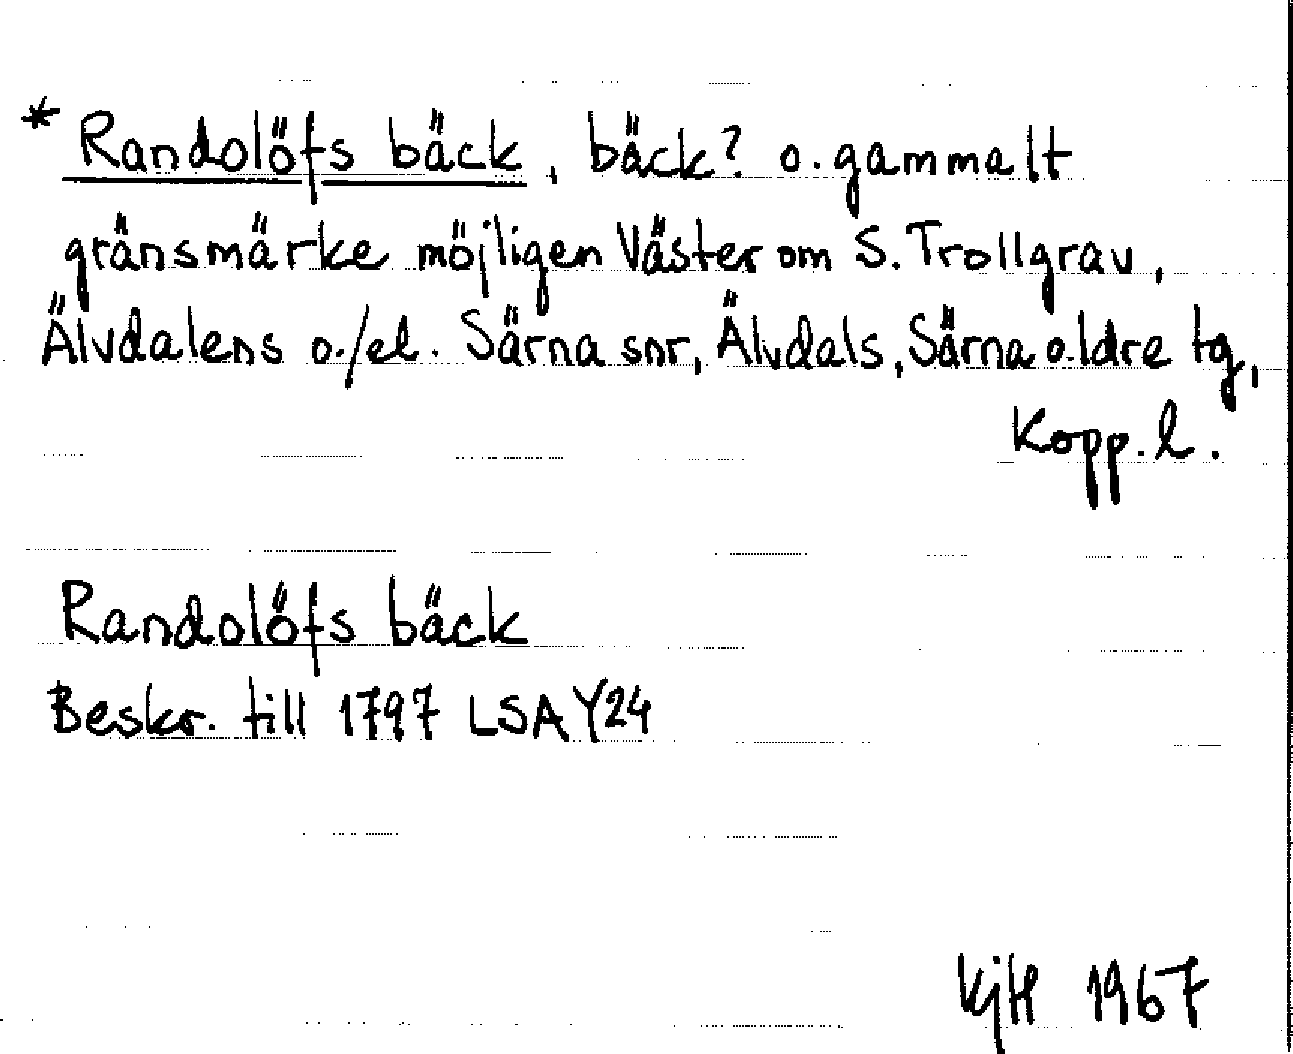 * Randolöfs bäck, bäck? o. gammalt
gränsmärke möjligen Väster om S. Trollgrav,
Älvdalens o./el. Särna snr, Älvdals, Särna o. Idre tg,
Kopp. l.
Randolöfs bäck
Beskr. till 1797 LSA Y24
KjH 1967